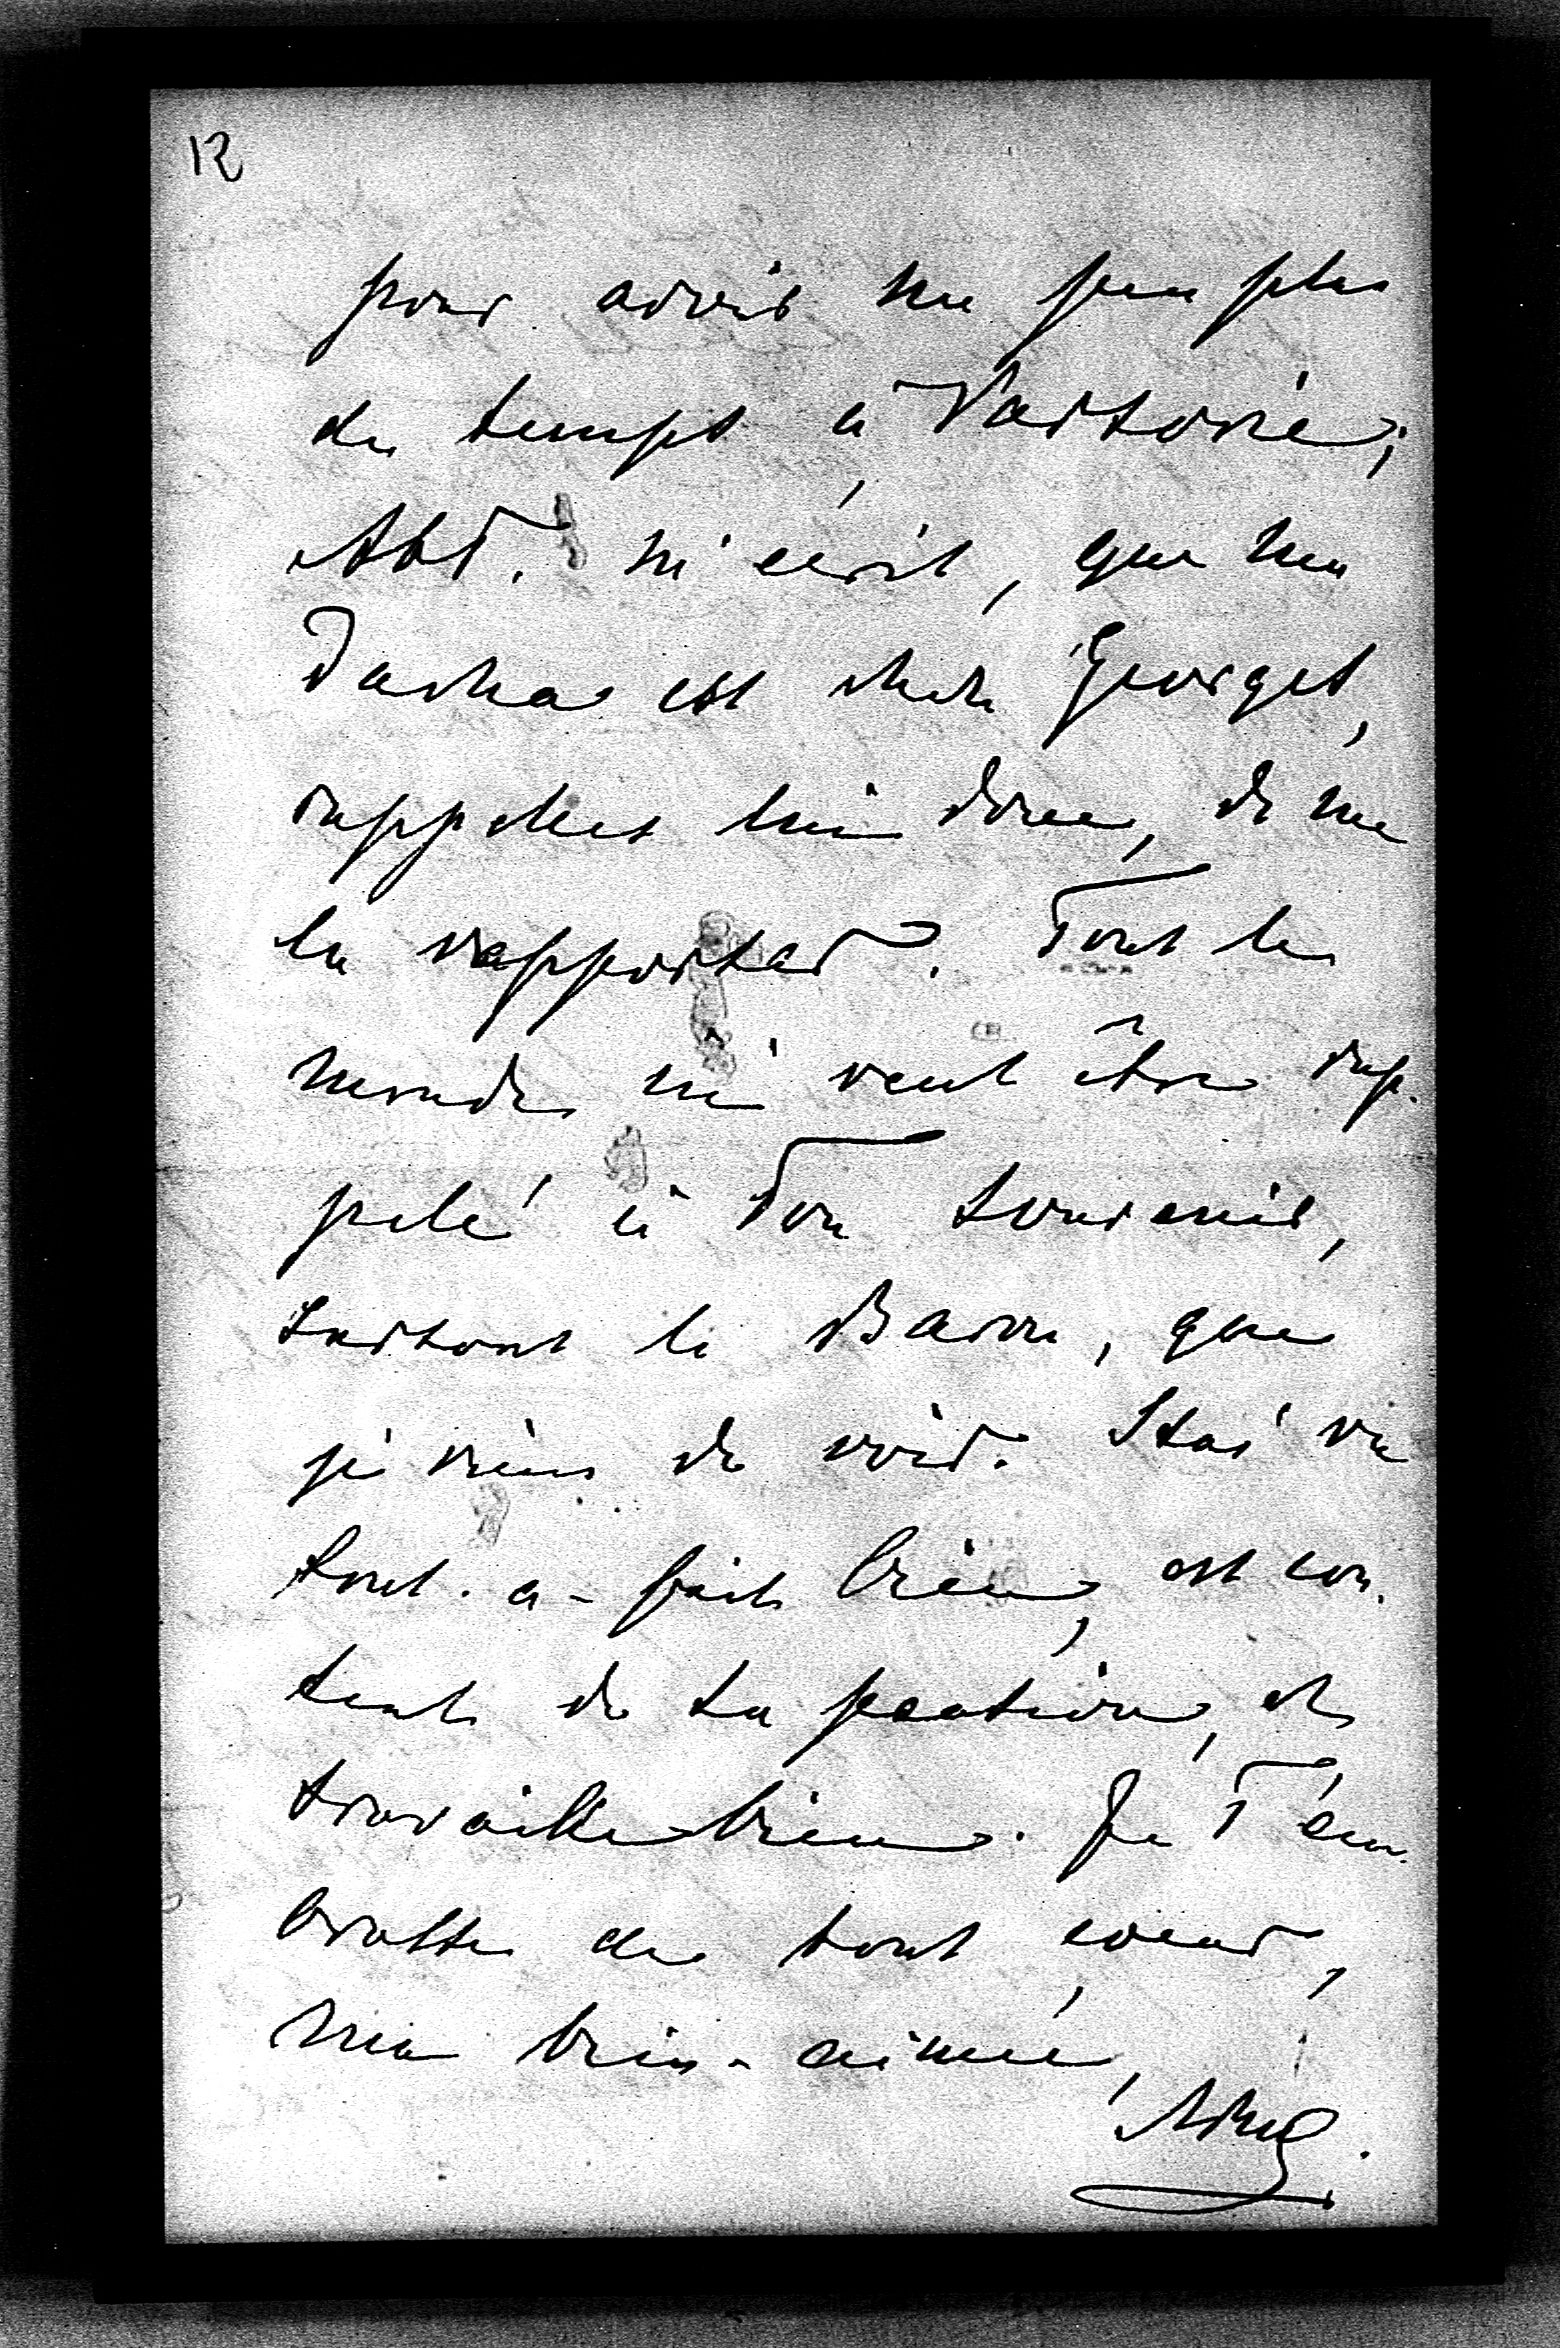 12
pour avoir un peu plus
de temps à Varsovie;
Abd. m'écrit, que ma
Dacha est chez Georges,
rappelles lui donc, de me
la rapporter. Tout le
monde m' veut être rap-
pelé à Ton souvenir,
surtout le Baron, que
je viens de voir. Stas' va
tout-a-fait bien, est con-
tent de sa position, et
travaille bien. Je T'em-
brasse de tout coeur,
ma bien-aimée,